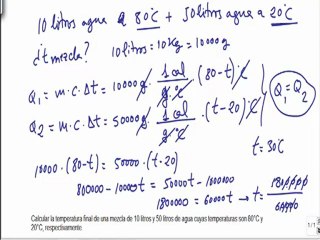 10 litros agua a 80ºC + 50 litros agua a 20ºC
¿t mezcla? 10 litros = 10 Kg = 10000 g
Q₁ = m·c·Δt = 10000 g · 1 cal / g·ºC · (80-t) ºC
Q₂ = m·c·Δt = 50000 g · 1 cal / g·ºC · (t-20) ºC
Q₁ = Q₂
10000 · (80-t) = 50000 · (t-20)
t = 30ºC
800000 - 10000t = 50000t - 1000000
1800000 = 60000t → t = 1800000 / 60000
Calcular la temperatura final de una mezcla de 10 litros y 50 litros de agua cuyas temperaturas son 80ºC y
20ºC, respectivamente
1/1